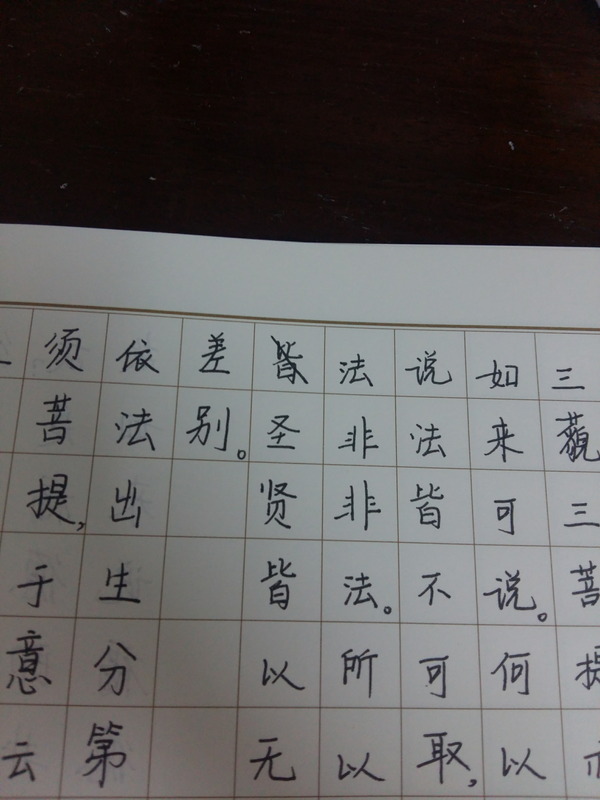 三藐三菩提
如来可说。何以
说法皆不可取,以
法非非法。所以
圣贤皆以无
差别。
依法出生分第
须菩提,于意云